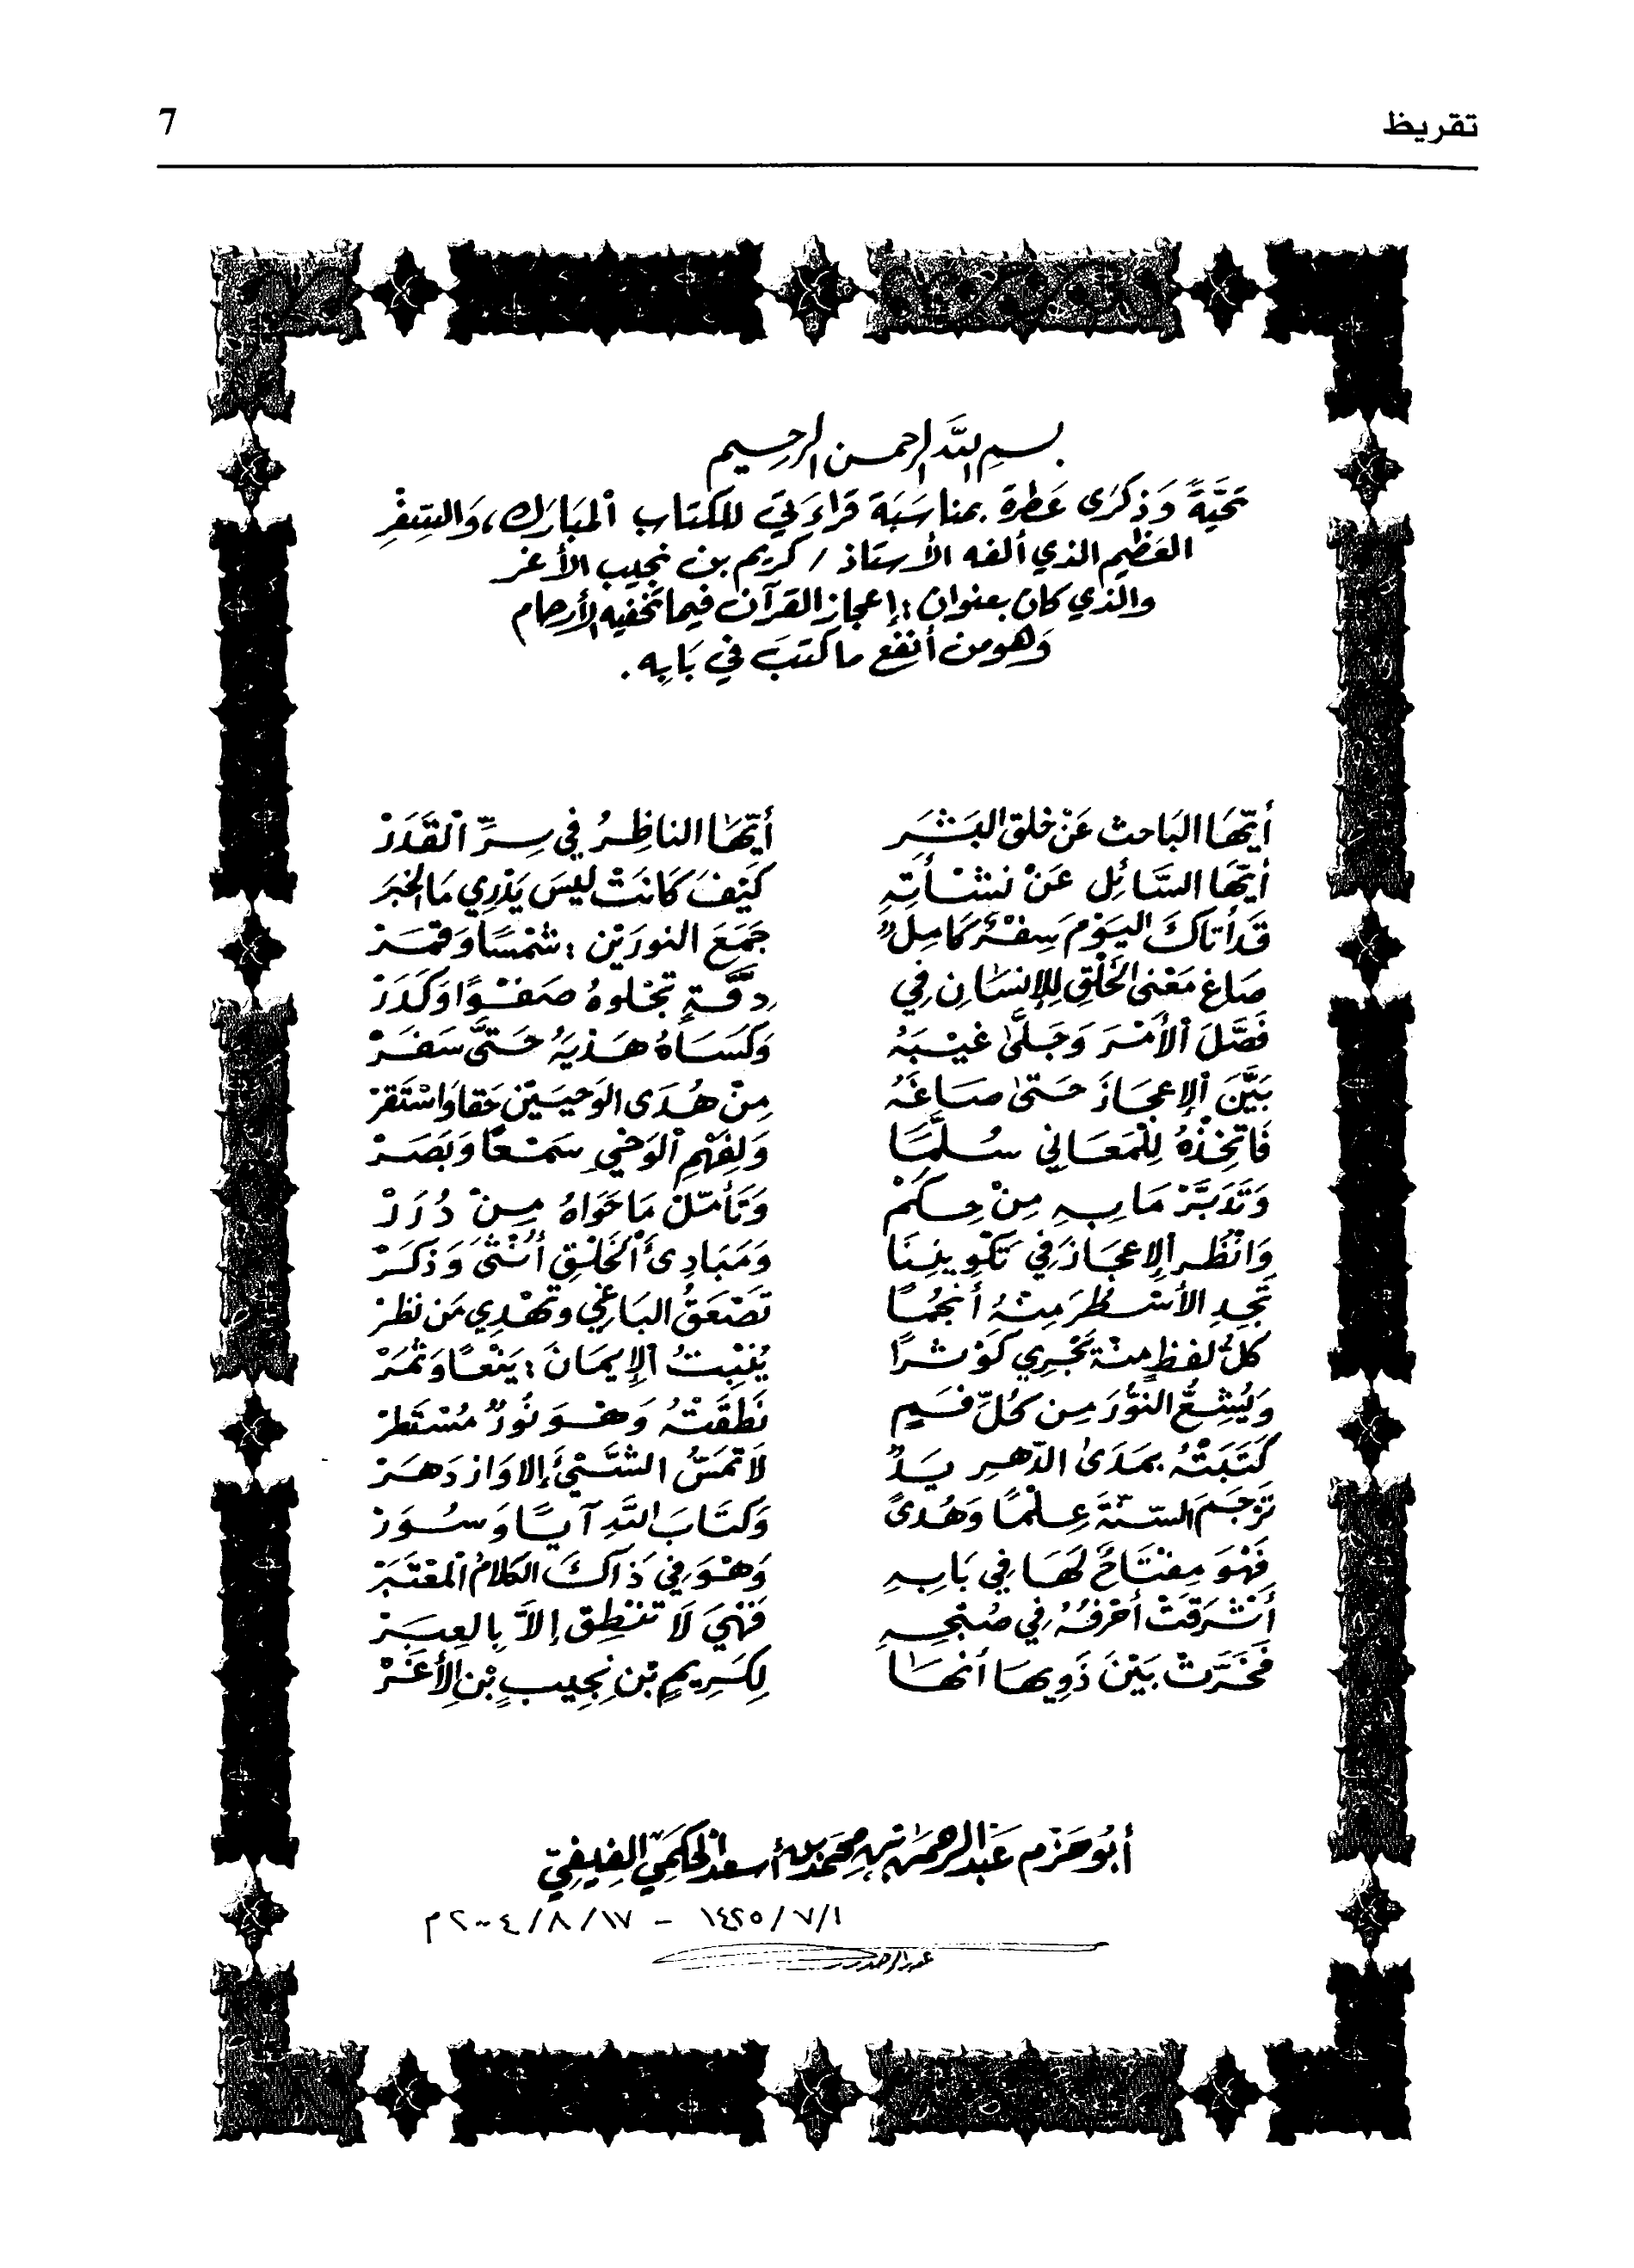 تقريظ
7
بسم الله الرحمن الرحيم
تحَيَّةً وَذِكرَى عَطِرة بمناسَبَة قراءَتي للكتاب اَلمبَارك، وَالسِّفْرِ
العَظيم الذي ألفه الأستاذ / كريم بن نجيب الأغر
والذي كان بعنوان : إعجاز القرآن فيما تخفيه الأرحام
وَهو من أنفع ما كُتبَ في بَابِه .
أيّهَا البَاحث عَنْ خلق البَشَر
أيّهَا الناظِرُ في سِرِّ اْلقَدَرْ
أيّهَا السَّائِل عَنْ نَشْأتِهِ
كَيْفَ كَانَتْ ليسَ يَدْرِي مَا الخبَر
قَد أتَاكَ اليَوْمَ سِفْرٌ كَامِلٌ
جَمَعَ النورَيْن : شَمْسًا وَقمَرْ
صَاغ مَعْنى الخَلْقِ لِلإنسَانِ في
دِقَّةٍ تجْلوهُ صَفْوًا وَكَدَرْ
فَصَّلَ اْلأَمْرَ وَجَلَّى غَيْبَهُ
وَكَسَاهُ هَدْيَهُ حَتَّى سَفَرْ
بَيَّنَ اْلإعجَازَ حَتى صَاغَهُ
مِنْ هُدَى الوَحيَيْن حَقا وَاسْتَقرْ
فَاتخِذْهُ لِلْمَعَاني سُلَّمًا
وَلِفَهْمِ اْلوَحْي سَمْعًا وَبَصَرْ
وَتَدَبَّرْ مَا بِهِ مِنْ حِكَمْ
وَتَأمّلْ مَا حَوَاهُ مِنْ دُرَرْ
وَانْظُر اْلإعجَازَ في تَكْوِينِنَا
وَمَبَادِئ اْلخَلْقِ أُنْثَى وَذَكَرْ
تجِدِ الأسْطُرَ مِنْهُ أنجُمًا
تَصْعَقُ البَاغي وتهْدِي مَن نظرْ
كلُّ لفظٍ مِنْهُ يَجْرِي كَوْثرًا
يُنْبِتُ اْلإيمَانَ : يَنْعًا وَثمَرْ
وَيُشِعُّ النُّورَ مِن كُلِّ فَمٍ
نَطَقَتْهُ وَهْوَ نُورٌ مُسْتَطَرْ
كَتَبَتْهُ بمَدَى الدَّهرِ يَدٌ
لاَ تمَسُّ الشَّيْئَ إلا وَازدَهَرْ
تَرْجَمَ السّنَّةَ عِلْمًا وَهُدًى
وَكتَابَ اللهِ آيًا وَسُوَرْ
فَهْوَ مِفْتَاحٌ لَهَا في بَابِهِ
وَهْوَ في ذَاكَ الكَلامُ اْلمعْتَبَرْ
أشْرَقَتْ أحْرفُهُ في صُبْحِهِ
فَهْيَ لاَ تَنْطِق إلاَّ بِالعِبَرْ
فَخَرَتْ بَيْنَ ذَوِيهَا أنهَا
لِكَرِيمٍ بْن نجِيبٍ بْن الأغَرْ
أبُو حَزْم عَبْد الرحمن بن محمّد بن أسعد الحكَمي الفيفيّ
١/ ٧ /١٤٢٥ - ١٧/ ٨/ ٢٠٠٤م